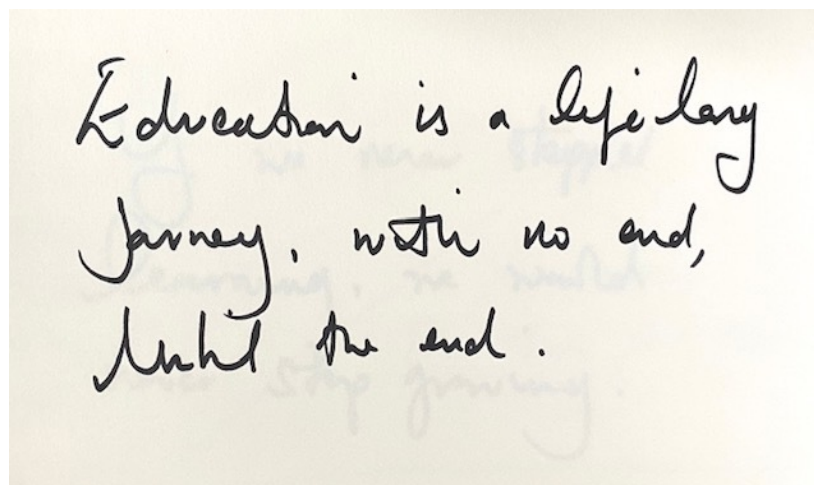 Education is a life long
journey, with no end,
Until the end.